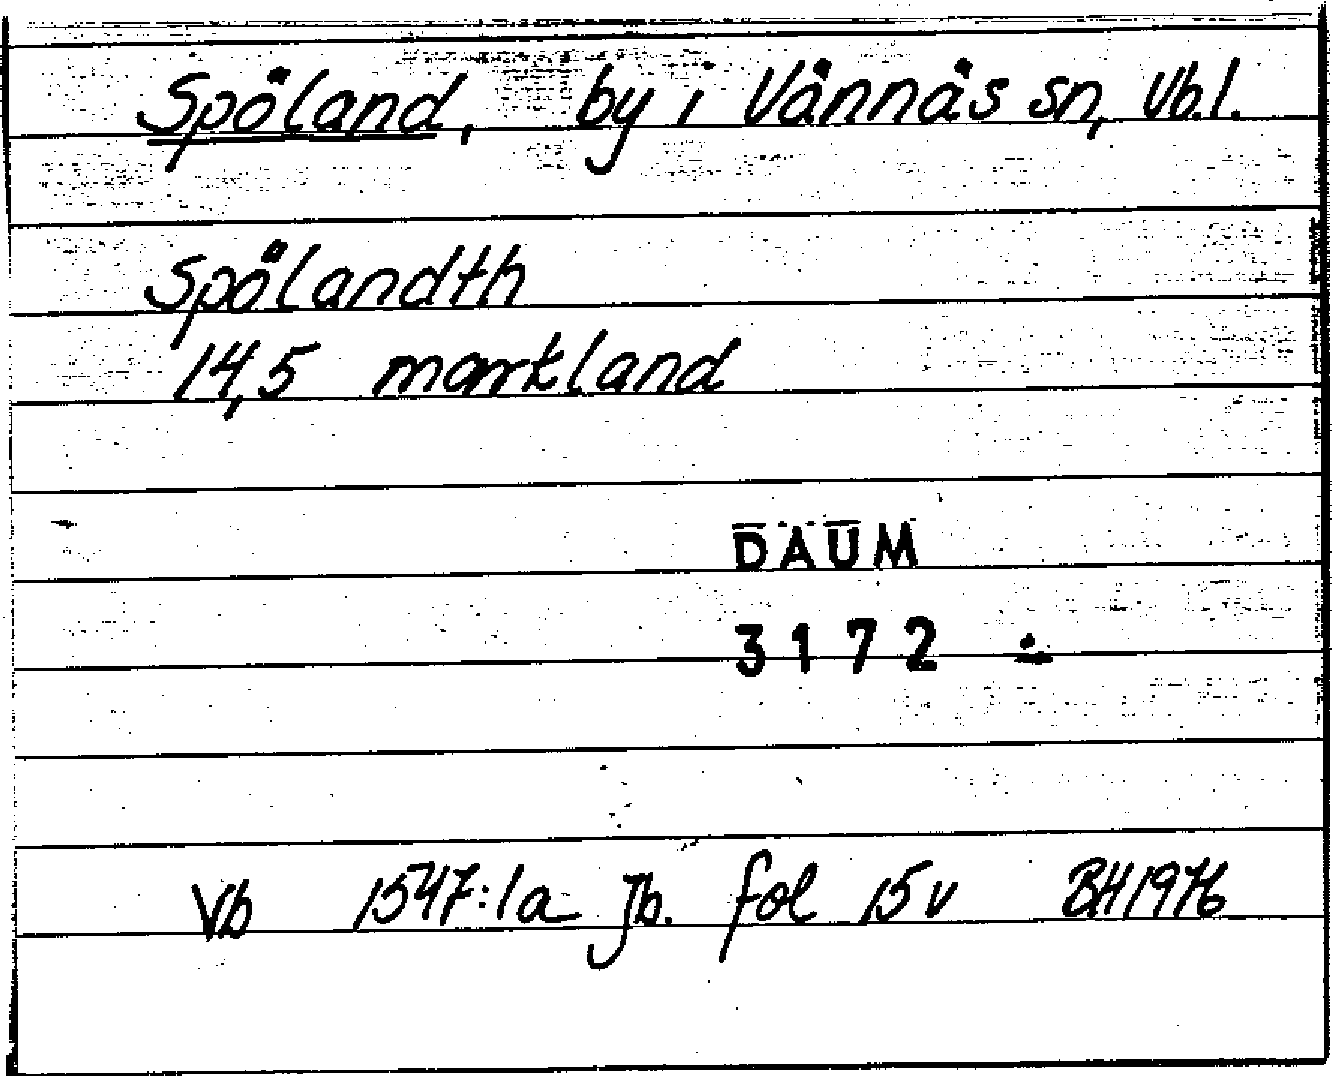 Spöland, by i Vännäs sn, Vb.l.
Spölandth
14,5 markland
DAUM
3172
Vb 1547:1a Jb. fol 15v BH1976